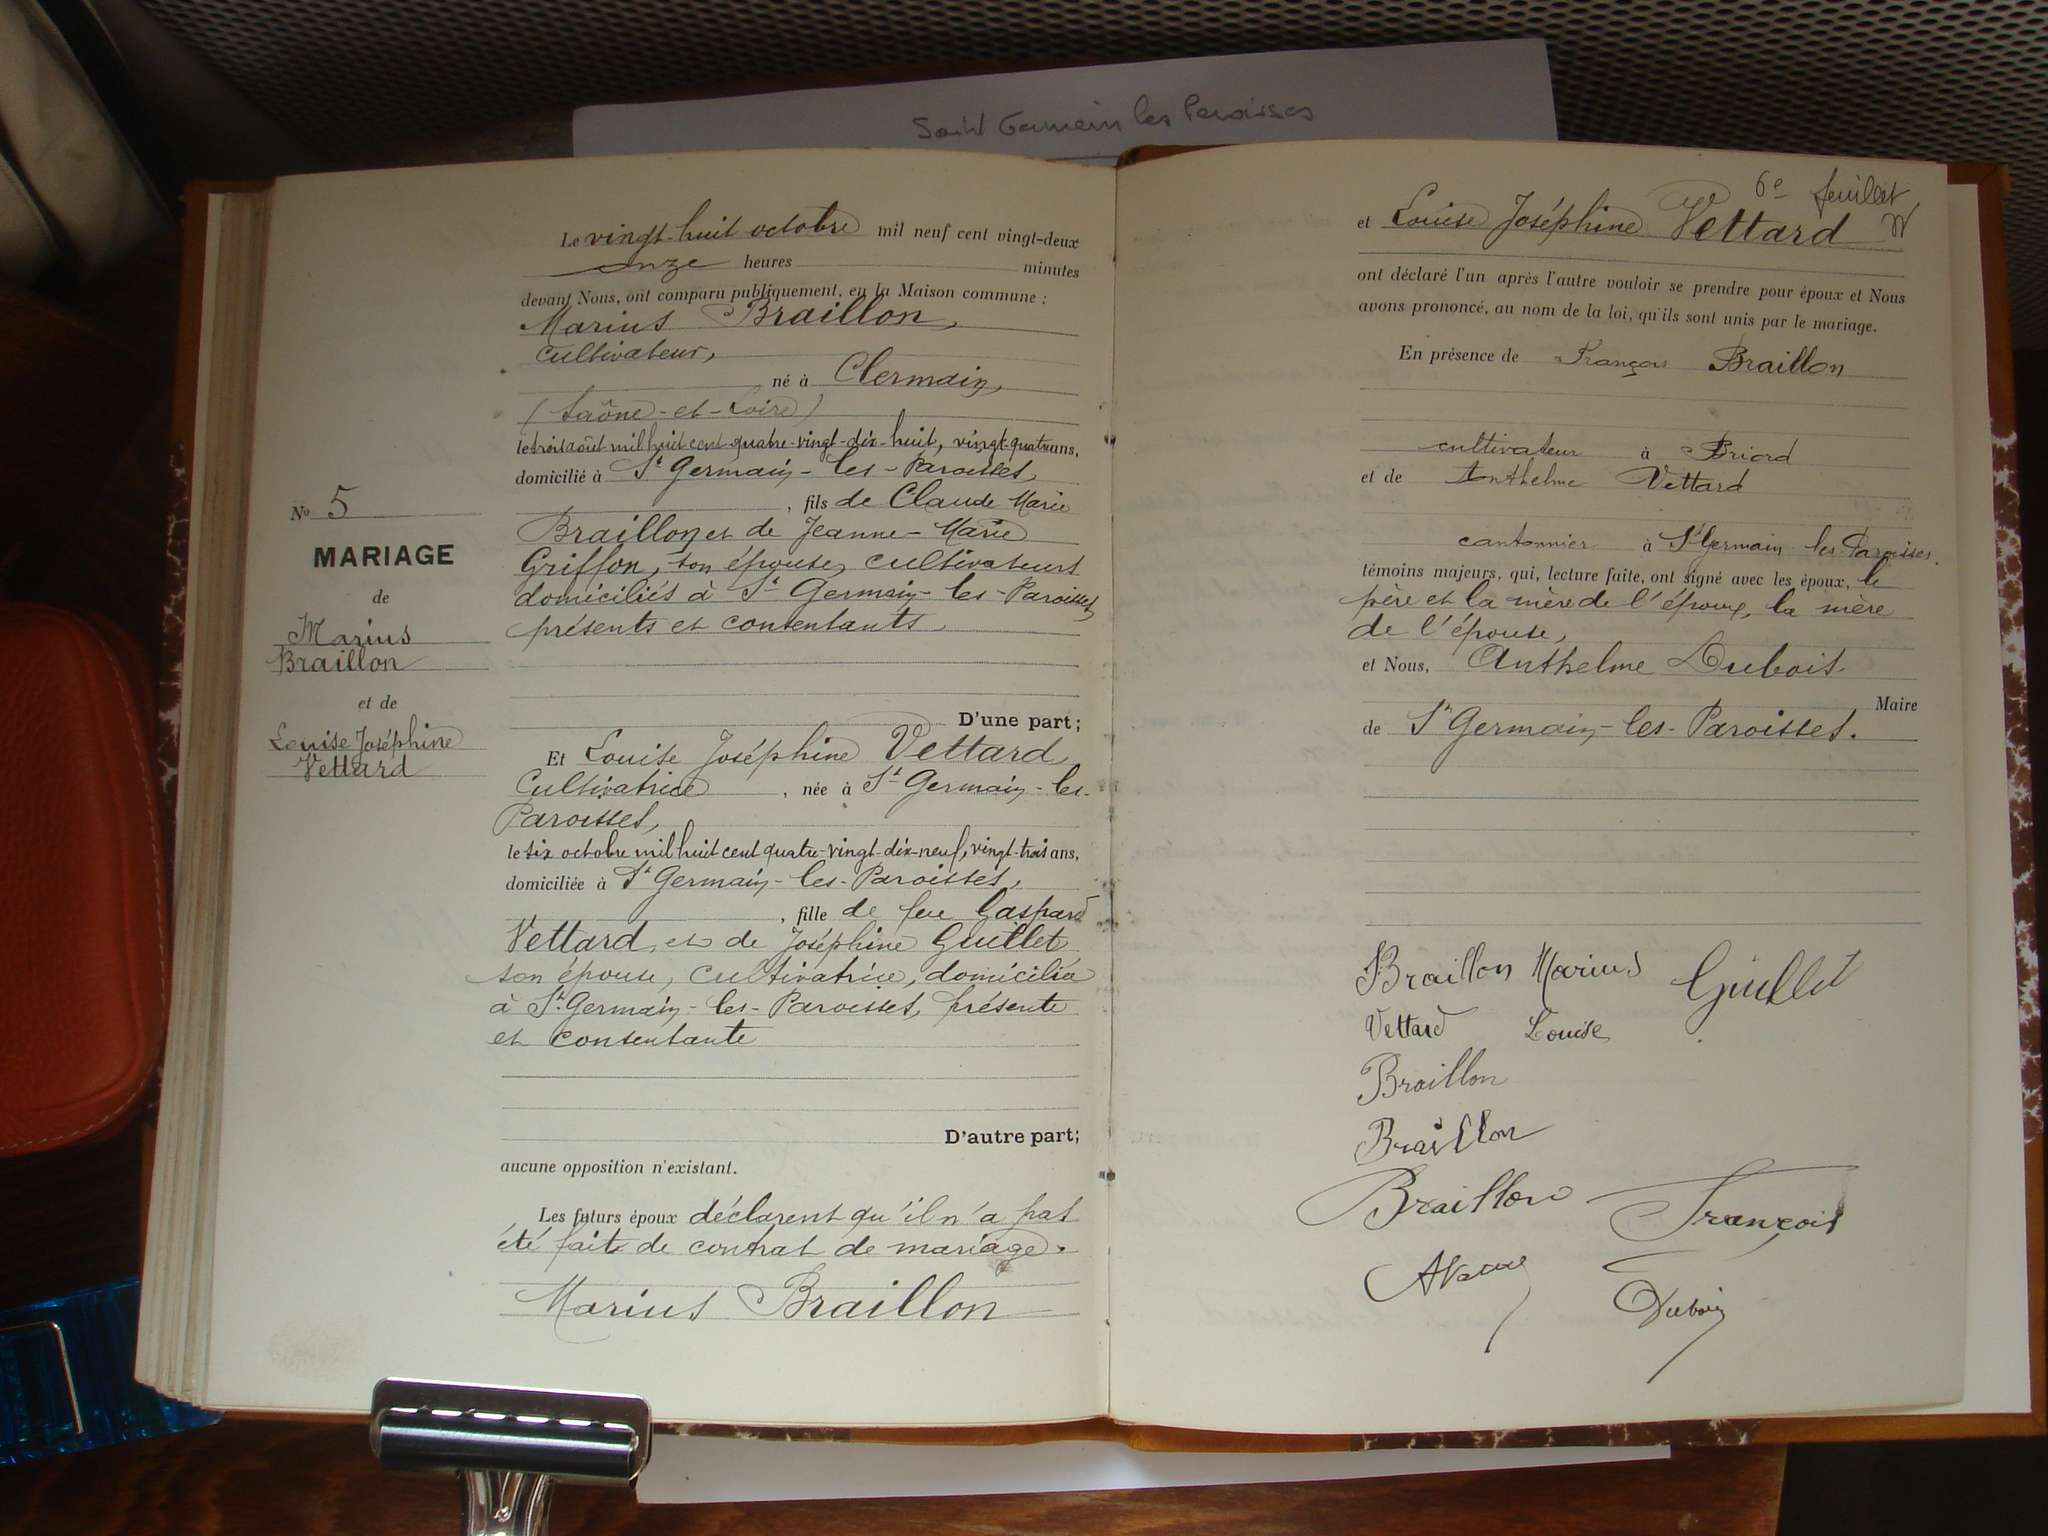 Saint Germain les Paroisses
Le vingt-huit octobre mil neuf cent vingt-deux
onze heures minutes
devant Nous, ont comparu publiquement, en la Maison commune :
Marius Braillon,
cultivateur,
né à Clermain,
(Saône-et-Loire)
le trois août mil huit cent quatre-vingt-dix-huit, vingt-quatre ans,
domicilié à St Germain-les-Paroisses,
, fils de Claude Marie
Braillon et de Jeanne-Marie
Griffon, son épouse, cultivateurs
domiciliés à St Germain-les-Paroisses,
présents et consentants,
No 5
MARIAGE
de
Marius
Braillon
et de
Louise Joséphine
Vettard
D'une part;
Et Louise Joséphine Vettard,
Cultivatrice , née à St Germain-les-
Paroisses,
le six octobre mil huit cent quatre-vingt-dix-neuf, vingt-trois ans,
domiciliée à St Germain-les-Paroisses,
, fille de feu Gaspard
Vettard, et de Joséphine Guillet
son épouse, cultivatrice, domiciliée
à St Germain-les-Paroisses, présente
et consentante
D'autre part;
aucune opposition n'existant.
Les futurs époux déclarent qu'il n'a pas
été fait de contrat de mariage.
Marius Braillon
6e feuillet
et Louise Joséphine Vettard
ont déclaré l'un après l'autre vouloir se prendre pour époux et Nous
avons prononcé, au nom de la loi, qu'ils sont unis par le mariage.
En présence de François Braillon
cultivateur à Briord
et de Anthelme Vettard
cantonnier à St Germain-les-Paroisses.
témoins majeurs, qui, lecture faite, ont signé avec les époux, le
père et la mère de l'époux, la mère
de l'épouse,
et Nous, Anthelme Dubois
Maire
de St Germain-les-Paroisses.
Braillon Marius Guillet
Vettard Louise
Braillon
Braillon
Braillon François
Dubois